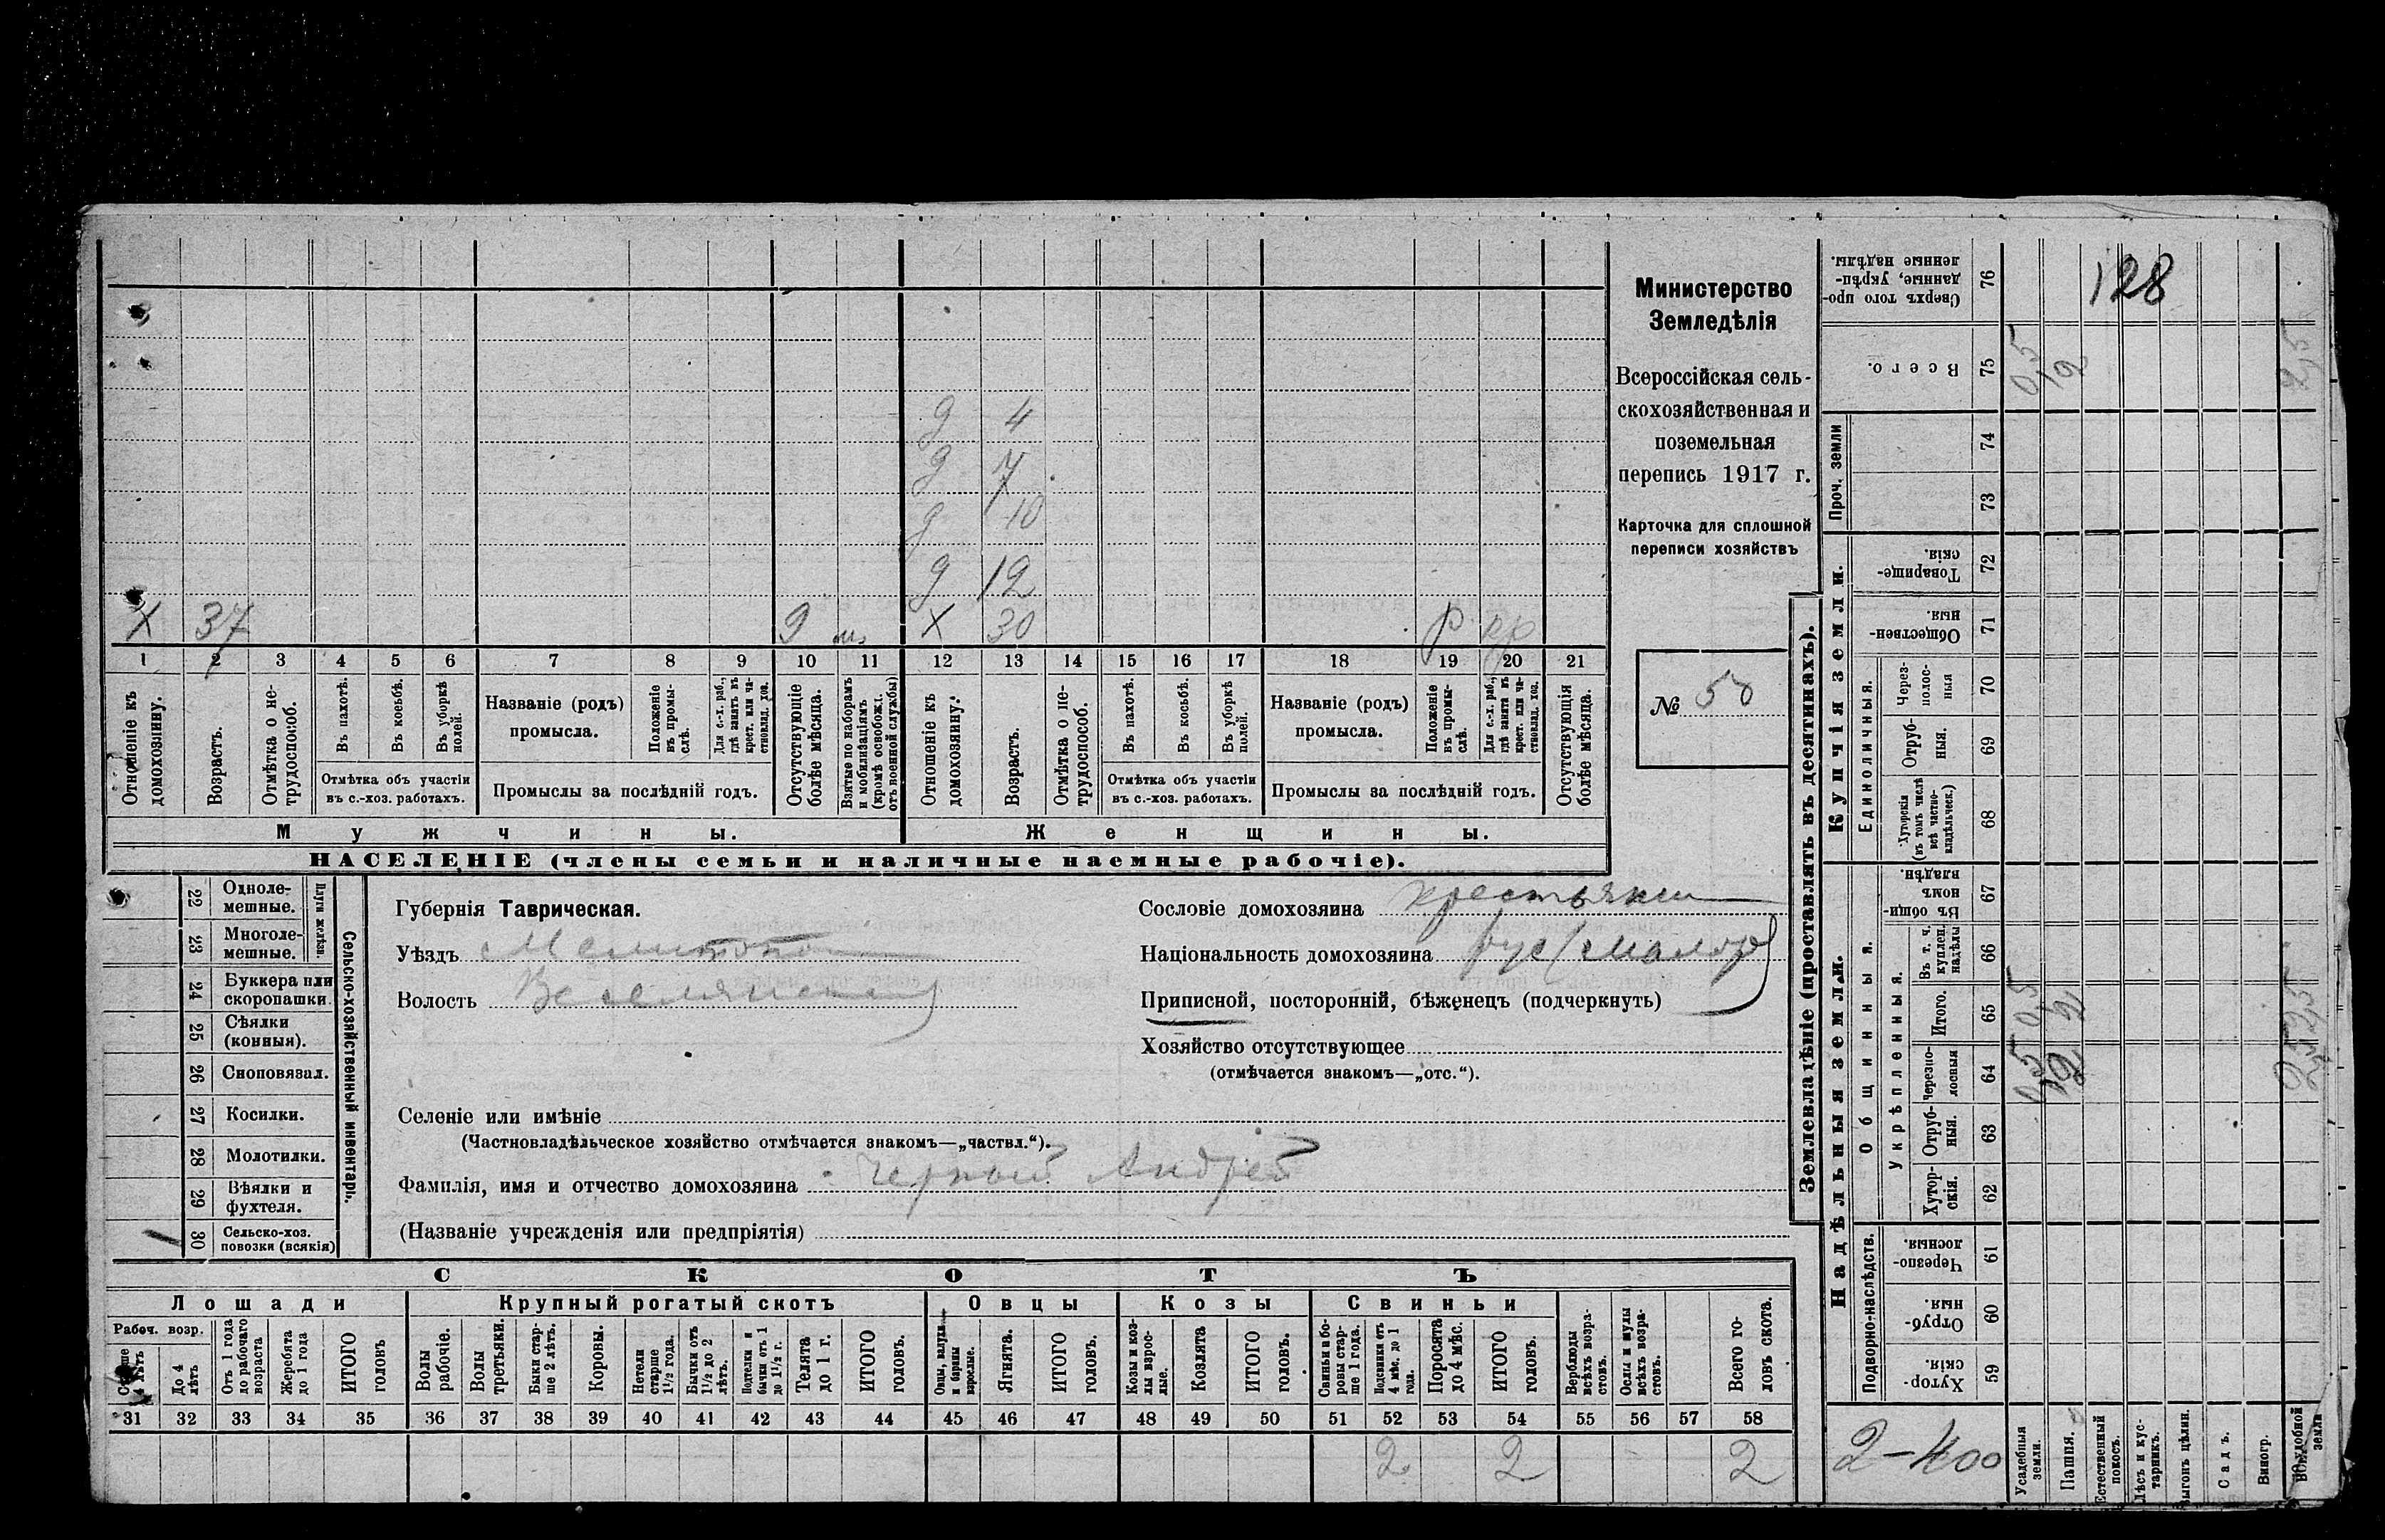 Министерство
Земледѣлія
Всероссійская сель-
скохозяйственная и
поземельная
перепись 1917 г.
Карточка для сплошной
переписи хозяйствъ
№ 50
д 4
д 7
д 10
д 12
х 37 9 м х 30 р кр
1 2 3 4 5 6 7 8 9 10 11 12 13 14 15 16 17 18 19 20 21
Отношеніе къ домохозяину.
Возрастъ.
Отмѣтка о не-трудоспособ.
Въ пахотѣ.
Въ косьбѣ.
Въ уборкѣ полей.
Отмѣтка объ участіи
въ с.-хоз. работахъ.
Названіе (родъ)
промысла.
Положеніе въ промы-слѣ.
Для с.-х. раб., гдѣ занятъ въ крест. или ча-стновлад. хоз.
Промыслы за послѣдній годъ.
Отсутствующіе болѣе мѣсяца.
Взятые по наборамъ и мобилизаціямъ (кромѣ освобожд. отъ военной службы)
Отношеніе къ домохозяину.
Возрастъ.
Отмѣтка о не-трудоспособ.
Въ пахотѣ.
Въ косьбѣ.
Въ уборкѣ полей.
Отмѣтка объ участіи
въ с.-хоз. работахъ.
Названіе (родъ)
промысла.
Положеніе въ промы-слѣ.
Для с.-х. раб., гдѣ занята въ крест. или ча-стновлад. хоз.
Промыслы за послѣдній годъ.
Отсутствующія болѣе мѣсяца.
Мужчины. Женщины.
НАСЕЛЕНІЕ (члены семьи и наличные наемные рабочіе).
22 Одноле-мешные.
23 Многоле-мешные.
Плуги желѣзн.
24 Буккера или скоропашки.
25 Сѣялки (конныя).
26 Сноповязал.
27 Косилки.
28 Молотилки.
29 Вѣялки и фухтеля.
1 30 Сельско-хоз. повозки (всякія)
Сельско-хозяйственный инвентарь.
Губернія Таврическая.
Уѣздъ Мелитопо
Волость Веселянская
Сословіе домохозяина крестьянин
Національность домохозяина рус (малор)
Приписной, посторонній, бѣженецъ (подчеркнуть)
Хозяйство отсутствующее
(отмѣчается знакомъ—„отс.“).
Селеніе или имѣніе
(Частновладѣльческое хозяйство отмѣчается знакомъ—„частвл.“).
Фамилія, имя и отчество домохозяина Черный Андрей
(Названіе учрежденія или предпріятія)
СКОТЪ
Лошади Крупный рогатый скотъ Овцы Козы Свиньи
Рабоч. возр.
Старше 4 лѣтъ
До 4 лѣтъ
Отъ 1 года до рабочаго возраста
Жеребята до 1 года
ИТОГО головъ
Волы рабочіе.
Волы третьяки.
Быки стар-ше 2 лѣтъ.
Коровы.
Нетели старше 1 1/2 года.
Бычки отъ 1 1/2 до 2 лѣтъ.
Подтелки и бычки отъ 1 до 1 1/2 г.
Телята до 1 г.
ИТОГО головъ.
Овцы, валухи и бараны взрослые.
Ягнята.
ИТОГО головъ.
Козы и коз-лы взрос-лые.
Козлята
ИТОГО головъ.
Свиньи и бо-ровы стар-ше 1 года.
Подсвинки отъ 4 мѣс. до 1 года.
Поросята до 4 мѣс.
ИТОГО головъ.
Верблюды всѣхъ возра-стовъ.
Ослы и мулы всѣхъ возра-стовъ.
Всего го-ловъ скота.
31 32 33 34 35 36 37 38 39 40 41 42 43 44 45 46 47 48 49 50 51 52 53 54 55 56 57 58
2 2 2
Землевладѣніе (проставлять въ десятинахъ).
128
Сверхъ того про-данные, укрѣп-ленные надѣлы. 76
Всего. 75 0,5 12 2,5
Проч. земли 74
73
Купчія земли.
Товарище-скія. 72
Обществен-ныя. 71
Единоличныя.
Через-полос-ныя 70
Отруб-ныя. 69
Хуторскія (въ томъ числѣ всѣ частно-владѣльческ.) 68
Надѣльныя земли.
Общинныя.
Въ общи-номъ владѣн. 67
Укрѣпленныя.
Въ т. ч. куплен. надѣлы 66
Итого. 65 0,5 12 2,5
Черезпо-лосныя 64 0,5 12 2,5
Отруб-ныя. 63
Хутор-скія. 62
Подворно-наслѣдств.
Черезпо-лосныя. 61
Отруб-ныя. 60
Хутор-скія 59
2-400
Усадебныя земли.
Пашня.
Естественный покосъ.
Лѣсъ и кус-тарникъ.
Выгонъ цѣлин.
Садъ.
Виногр.
земли